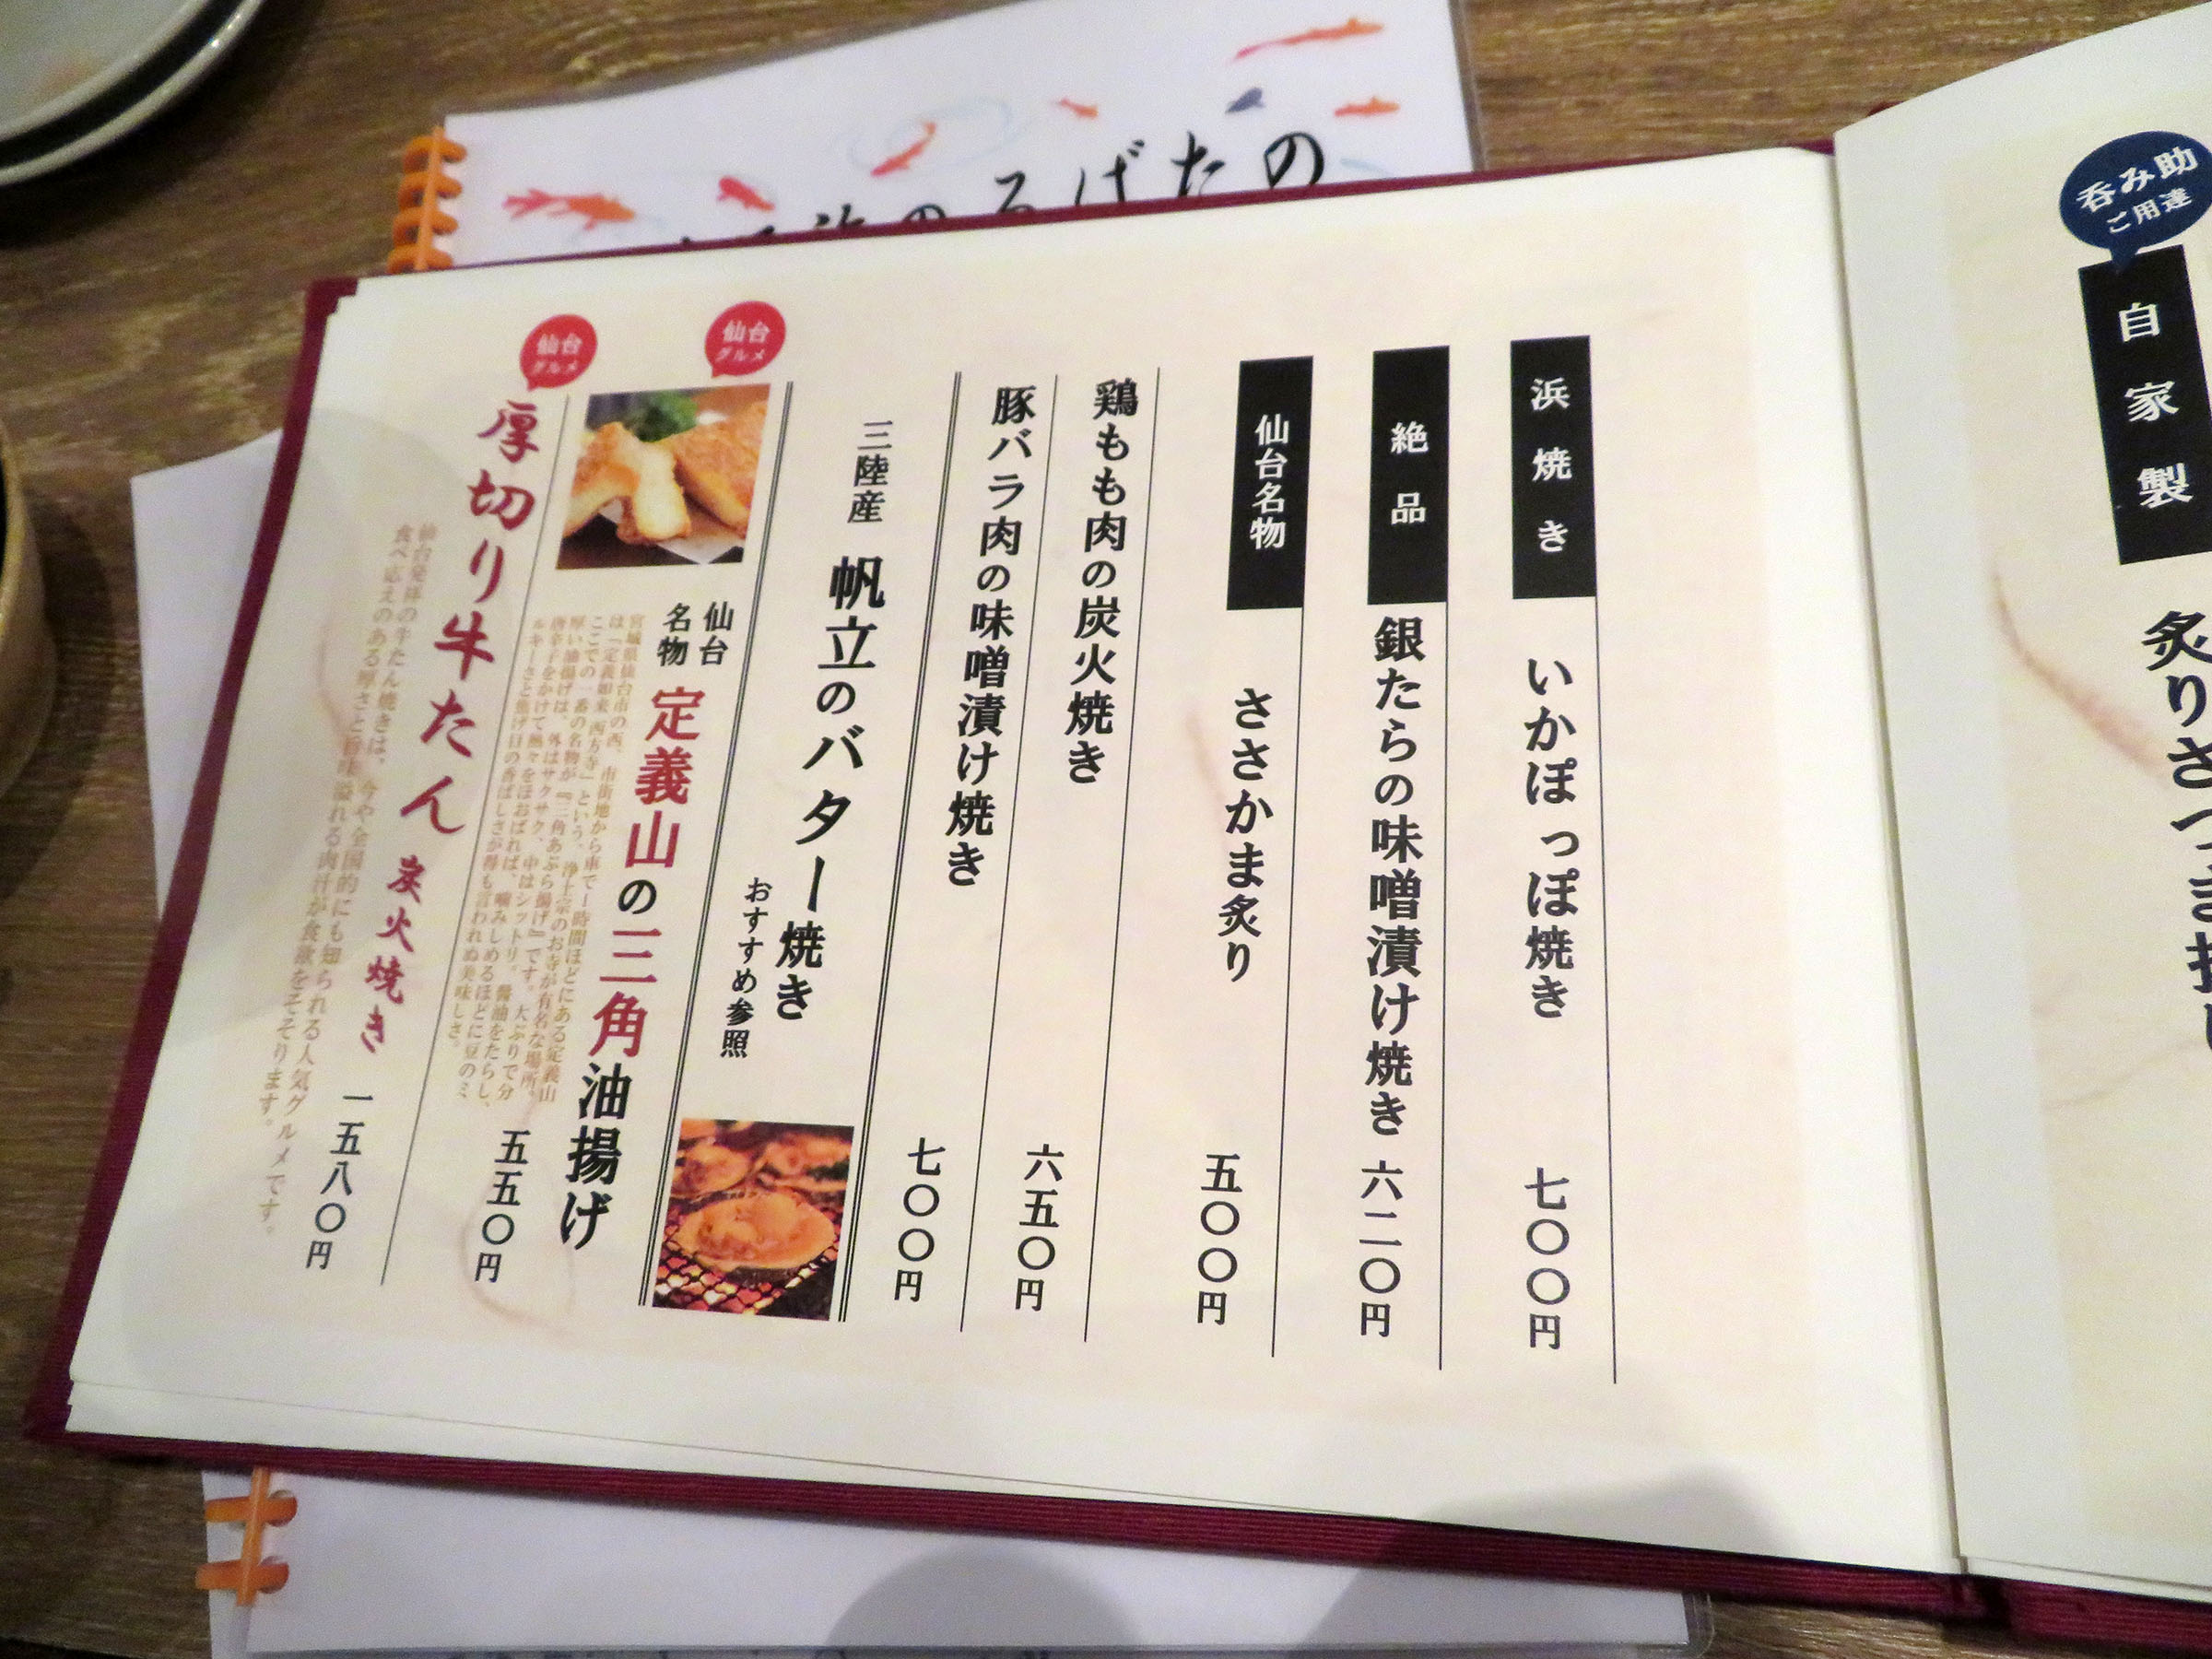 のたばろの海
呑み助
ご用達
自家製
炙りさつま揚げ
浜焼き
いかぽっぽ焼き
七〇〇円
絶品
銀たらの味噌漬け焼き
六二〇円
仙台名物
ささかま炙り
五〇〇円
鶏もも肉の炭火焼き
六五〇円
豚バラ肉の味噌漬け焼き
七〇〇円
三陸産
帆立のバター焼き
おすすめ参照
仙台
グルメ
仙台
名物
定義山の三角油揚げ
宮城県仙台市の西、市街地から車で一時間ほどにある定義山
は「定義如来 西方寺」という、浄土宗のお寺が有名な場所。
ここでの一番の名物が『三角あぶら揚げ』です。大ぶりで分
厚い油揚げは、外はサクサク、中はシットリ。醤油をたらし、
唐辛子をかけて熱々をほおばれば、噛みしめるほどに豆のミ
ルキーさと焦げ目の香ばしさが得も言われぬ美味しさ。
五五〇円
仙台
グルメ
厚切り牛たん 炭火焼き
一五八〇円
仙台発祥の牛たん焼きは、今や全国的にも知られる人気グルメです。
食べ応えのある厚さと旨味溢れる肉汁が食欲をそそります。